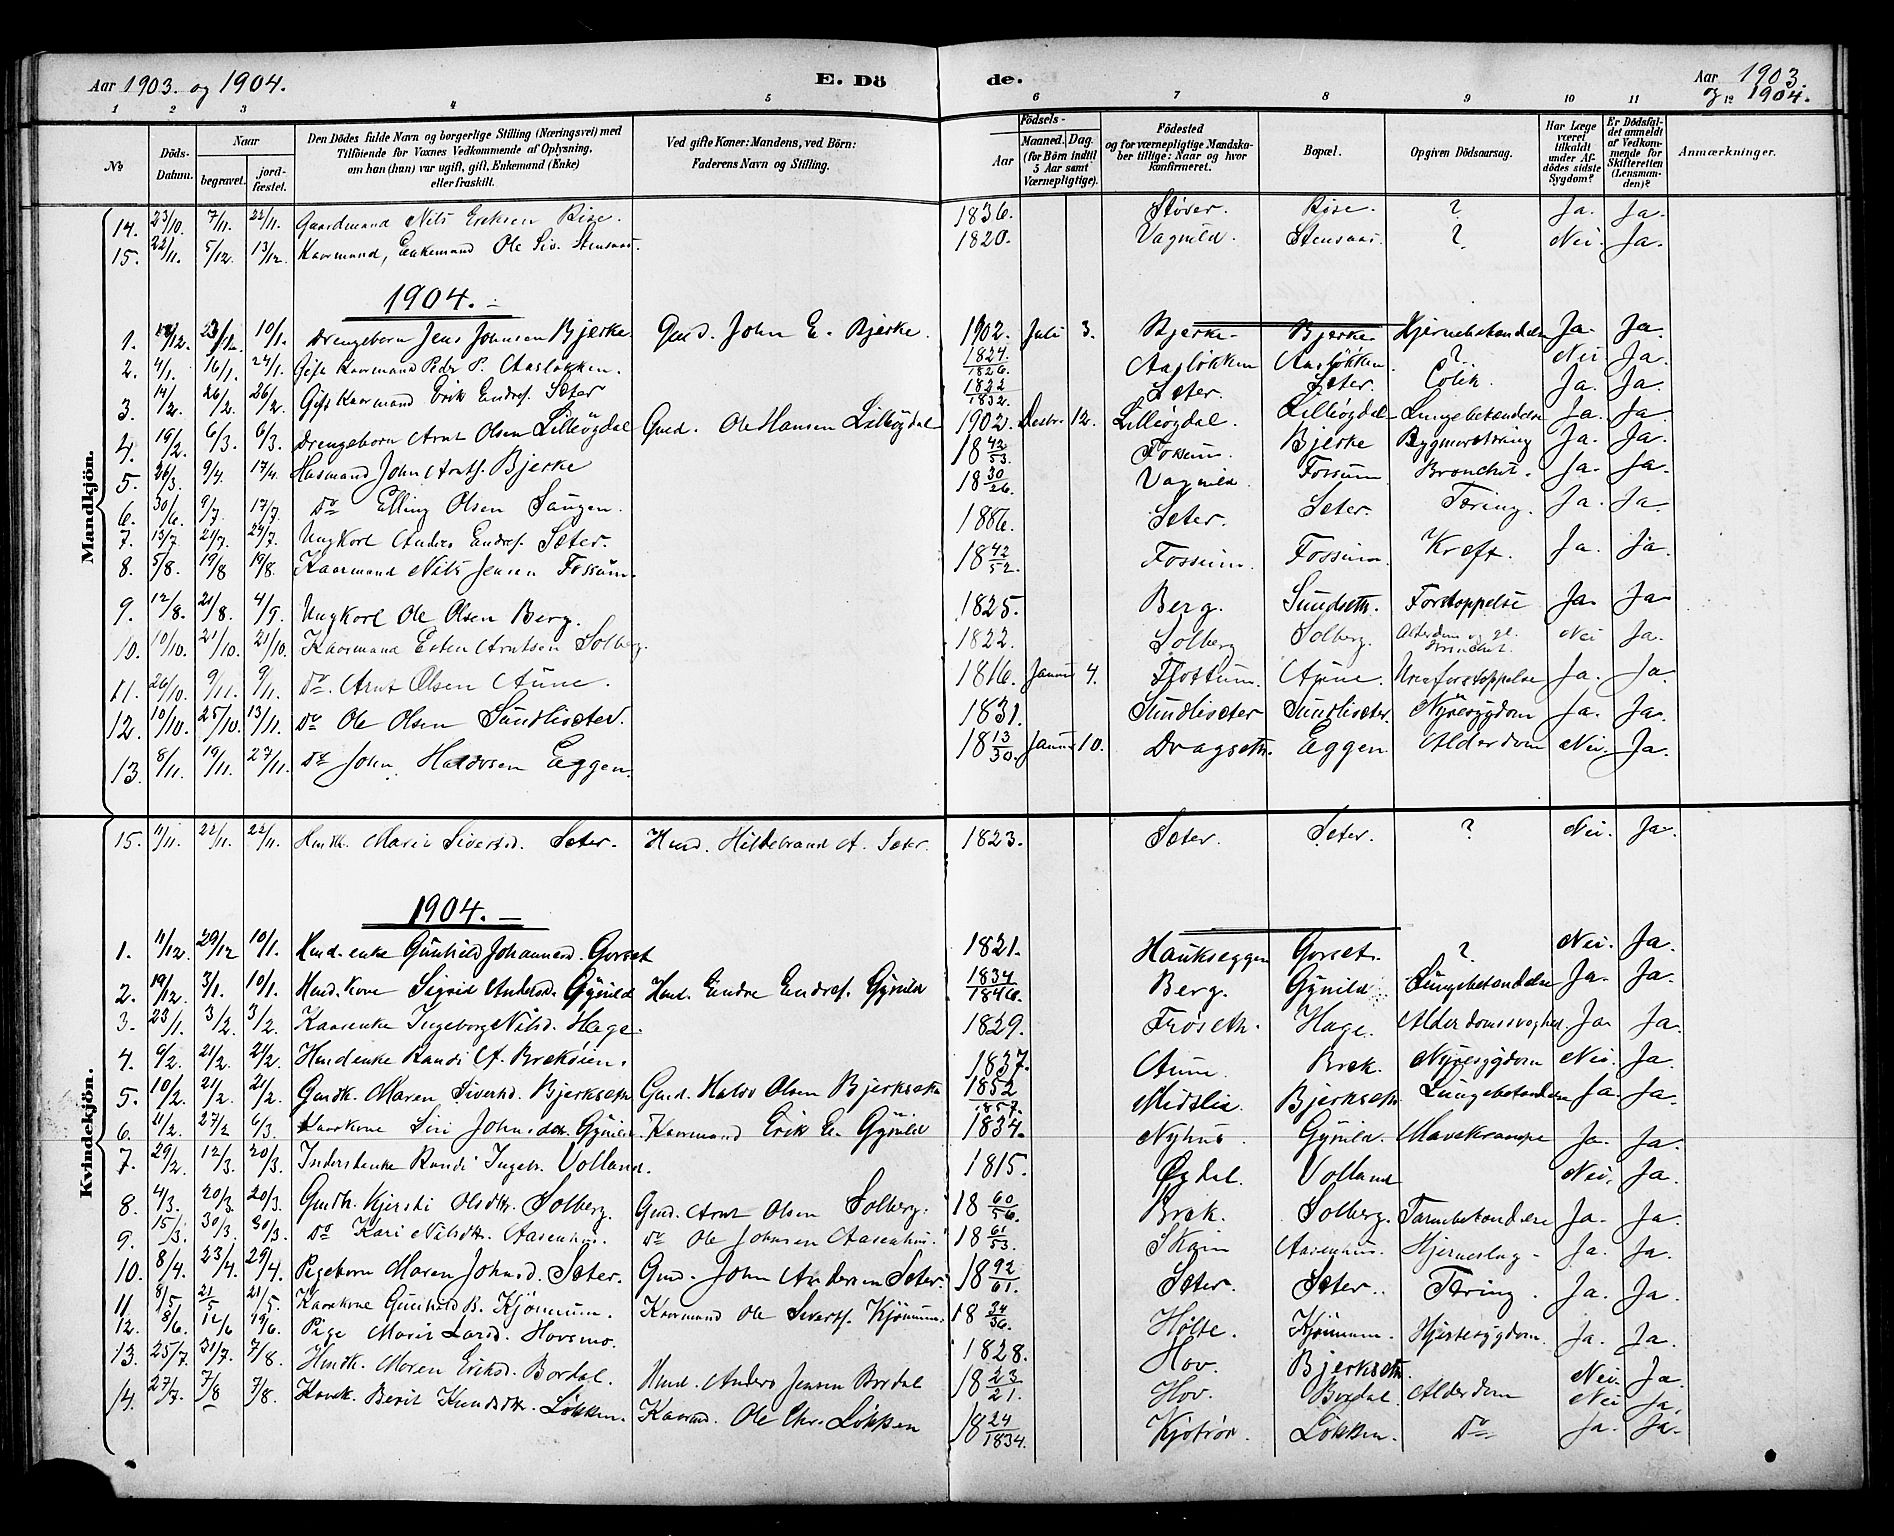 Aar 1903. og 1904. E. Dö de. Aar 1903. og 1904.
1 2 3 4 5 6 7 8 9 10 11 12
No Döds-Datum. Naar begravet. jordfæstet. Den Dödes fulde Navn og borgerlige Stilling (Næringsvei) med Tilföiende for Voxnes Vedkommende af Oplysning, om han (hun) var ugift, gift, Enkemand (Enke) eller fraskilt. Ved gifte Koner: Mandens, ved Börn: Faderens Navn og Stilling. Födsels- Aar Maaned. Dag. (for Börn indtil 5 Aar samt Værnepligtige). Födested og for værnepligtige Mandskaber tillige: Naar og hvor konfirmeret. Bopæl. Opgiven Dödsaarsag. Har Læge været tilkaldt under Afdödes sidste Sygdom? Er Dödsfaldet anmeldt af Vedkommende for Skifteretten (Lensmanden)? Anmærkninger.
Mandkjön.
14. 23/10. 7/11. 22/11. Gaardmand Nils Eriksen Rise. 1836. Stöver. Rise. ? Ja. Ja.
15. 22/11. 5/12. 13/12. Kaarmand, Enkemand Ole Siv. Stensaas. 1820. Vagnild. Stensaas. ? Nei. Ja.
1904.
1. 12. 23/12. 10/1. Drengebarn Jens Johnsen Bjerke Gmd. John E. Bjerke. 1902. Juli 3. Bjerke. Bjerke. Hjernebetændelse Ja. Ja.
2. 4/1. 16/1. 24/1. Gift Kaarmand Peder P. Aaslökken. 1824. 1826. Aaslökken Aaslökken. ? Nei Ja.
3. 14/2. 26/2. 26/2. Gift Kaarmand Erik Endres. Sæter 1822 1832. Sæter. Sæter. Colik. Ja. Ja.
4. 19/2. 6/3. 6/3. Drengebarn Arnt Olsen Lilleögdal Gmd. Ole Hansen Lilleögdal 1902. Desbr. 12. Lilleögdal. Lilleögdal Lungebetændelse Ja. Ja.
5. 26/3. 9/4. 17/4. Husmand John Arnts. Bjerke 18 42/53. Fossum. Bjerke Rygmarvstæring Ja. Ja.
6. 30/6. 9/7. 17/7. Do Elling Olsen Haugen. 18 30/26. Vagnild. Fossum. Bronchit. Ja. Ja.
7. 13/7. 24/7. 24/7. Ungkarl Anders Endres. Sæter. 1886. Sæter. Sæter. Tæring. Ja. Ja.
8. 5/8. 19/8 19/8. Kaarmand Nils Jensen Fossum. 18 42/52. Fossum. Fossum. Kræft. Ja. Ja.
9. 12/8. 21/8. 4/9. Ungkarl Ole Olsen Berg. 1825. Berg. Sundseth. Forstoppelse Ja. Ja
10. 10/10. 21/10. 21/10. Kaarmand Esten Arntsen Solberg. 1822. Solberg Solberg. Alderdom og gl. Bronchit. Nei Ja.
11. 26/10. 9/11. 9/11. Do. Arnt Olsen Aune. 1816. Januar 4. Flottum. Aune. Urinforstoppelse Ja. Ja.
12. 10/10. 25/10. 13/11. Do Ole Olsen Sundlisæter. 1831. Sundlisæter Sundlisæter. Nyresygdom Ja. Ja.
13. 8/11. 19/11. 27/11. Do John Halvorsen Eggen. 18 13/30. Januar 10. Dragseth. Eggen. Alderdom Nei. Ja.
Kvindekjön.
15. 11/11. 22/11. 22/11. Hmdk. Marit Sivertsd. Sæter. Hmd. Hildebrand A. Sæter. 1823. Sæter. Sæter. ? Nei. Ja.
1904.
1. 11/12. 29/12 10/1. Hmd.enke Gunhild Johannesd. Gorset 1821. Haukseggen Gorset. ? Nei. Ja.
2. 19/12. 3/1. 10/1. Hmd. Kone Sigrid Andersd. Gynild Hmd. Endre Endres. Gynild 1834 1846. Berg. Gynild Lungebetændelse Ja. Ja.
3. 23/1. 3/2. 3/2. Kaarenke Ingeborg Nilsd. Hage. 1829. Fröseth. Hage. Alderdomssvaghed Ja. Ja.
4. 9/2. 21/2. 21/2. Hmdenke Randi A. Breköien. 1837. Aune. Bræk. Nyresygdom Nei. Ja.
5. 10/2. 21/2. 21/2. Gmdk. Maren Sivertsd. Bjerkseth Gmd. Halvor Olsen Bjerkseth 1852 1857. Midtlie. Bjerkseth Lungebetændelse Ja. Ja.
6. 21/2. 27/2 6/3. Kaarkone Siri Johnsdtr. Gynild. Kaarmand Erik E. Gynild 1834. Nyhus. Gynild. Mavekrampe Ja. Ja.
7. 29/2. 12/3. 20/3. Inderstenke Randi Ingebr. Volland. 1815. Ögdal. Volland Nei. Ja.
8. 4/3. 20/3. 20/3. Gmdk. Kjersti Olsdtr. Solberg. Gmd. Arnt Olsen Solberg. 18 60/56. Bræk. Solberg. Tarmbetændelse Ja. Ja.
9. 15/3. 30/3. 30/3. Do Kari Nilsdtr. Aasenhus. Do Ole Johnsen Aasenhus. 18 61/53. Skain Aasenhus. Hjerneslag. Ja. Ja.
10. 8/4. 23/4. 29/4. Pigebarn Maren Johnsd. Sæter. Gmd. John Andersen Sæter. 18 92/61. Sæter. Sæter. Tæring. Ja. Ja.
11. 8/5. 21/5 21/5. Kaarkone Gunhild B. Kjönnum. Kaarmand Ole Siverts. Kjönnum. 18 34/36. Holte. Kjönnum. Hjertesygdom. Ja. Ja.
12. 8/6. 12/6 19/6. Pige Marit Larsd. Hovsmo. 1828. Hov. Bjerkseth. Nei. Ja.
13. 25/7. 31/7. 7/8. Hmdk. Maren Eriksd. Bordal. Hmd. Anders Jensen Bordal 18 23/21. Hov. Bordal. Alderdom Nei Ja.
14. 27/7. 7/8 7/8. Kaark. Berit Knudsdtr. Lökken. Kaarmd. Ole Chr. Lökken 18 24/1834. Lökken. Do Ja. Ja.